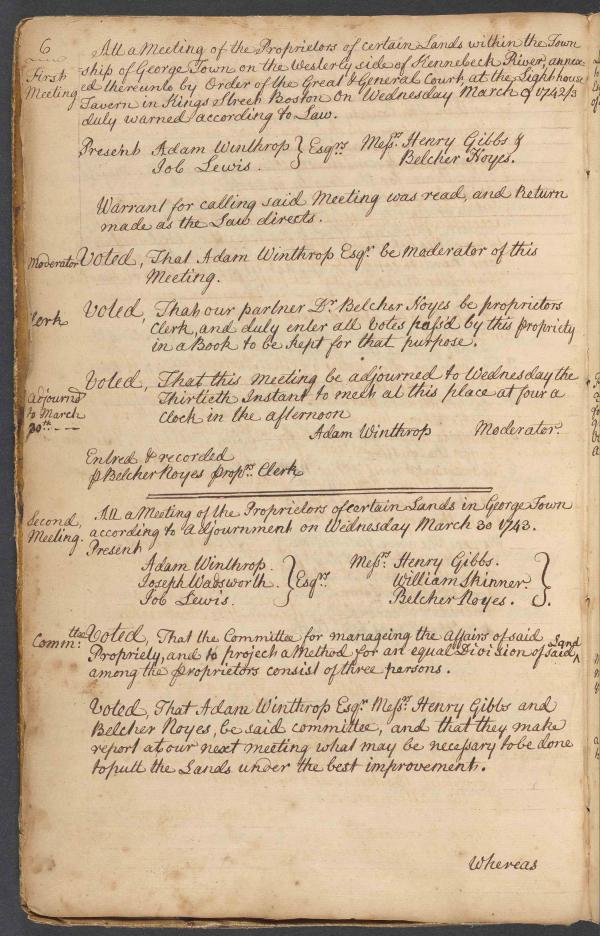 6
First
Meeting
Att a Meeting of the Proprietors of certain Lands within the Town
ship of George Town on the Westerly side of Kennebeck River, annex
ed thereunto by Order of the Great & General Court, at the Lighthouse
Tavern in Kings Street Boston On Wednesday March 9 1742/3
duly warned according to Law.
Present Adam Winthrop } Esqrs Messrs Henry Gibbs &
Job Lewis. Belcher Noyes.
Warrant for calling said Meeting was read, and Return
made as the Law directs.
Moderator Voted, That Adam Winthrop Esqr. be Moderator of this
Meeting.
Clerk Voted, That our partner Dr. Belcher Noyes be proprietors
Clerk, and duly enter all Votes pass'd by this Propriety
in a Book to be kept for that purpose.
Adjournd
to March
30th - -
Voted, That this meeting be adjourned to Wednesday the
Thirtieth Instant to meet at this place at four a
clock in the afternoon
Adam Winthrop Moderator.
Entred & recorded
p Belcher Noyes Proprs. Clerk
Second
Meeting.
Att a Meeting of the Proprietors of certain Lands in George Town
according to Adjournment on Wednesday March 30 1743.
Present
Adam Winthrop. } Esqrs Messrs. Henry Gibbs. }
Joseph Wadsworth. William Skinner.
Job Lewis. Belcher Noyes.
Committee: Voted, That the Committee for manageing the Affairs of said
Propriety, and to project a Method for an equal Division of said ^ Land
among the Proprietors consist of three persons.
Voted, That Adam Winthrop Esqr. Messrs. Henry Gibbs and
Belcher Noyes, be said committee, and that they make
report at our next meeting what may be necessary to be done
to putt the Lands under the best improvement.
Whereas